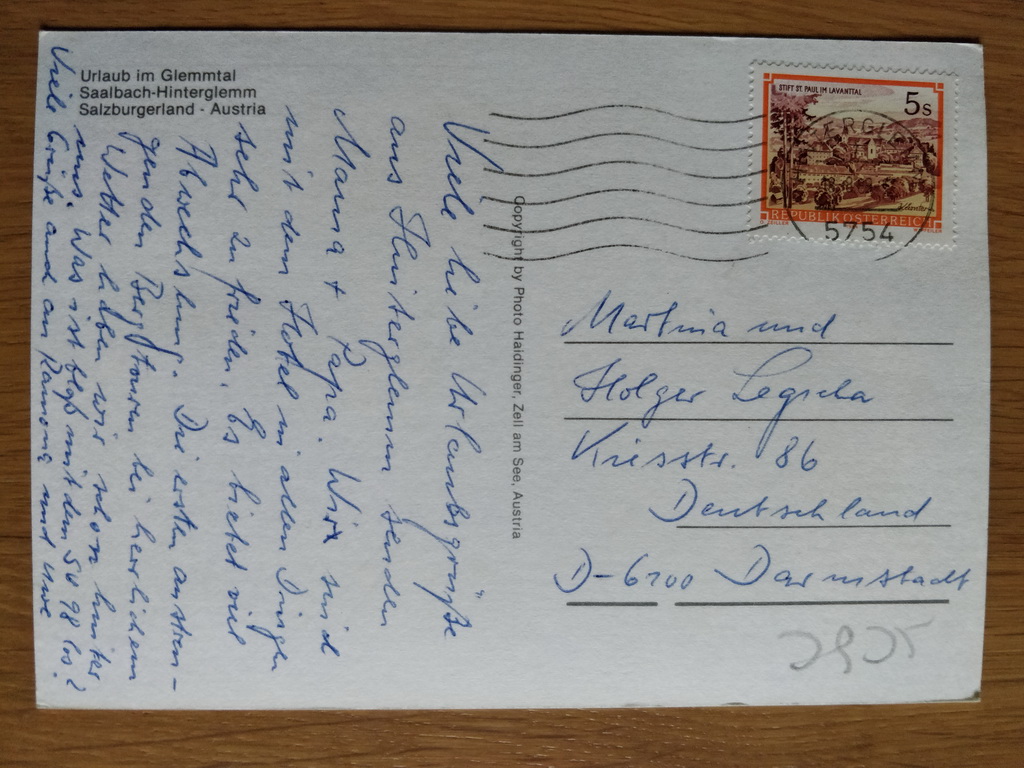 Urlaub im Glemmtal
Saalbach-Hinterglemm
Salzburgerland - Austria
Viele liebe Urlaubsgrüße
aus Hinterglemm senden
Mama + Papa. Wir sind
mit dem Hotel in allen Dingen
sehr zufrieden. Es bietet viel
Abwechslung. Die ersten anstren-
genden Bergtouren bei herrlichem
Wetter haben wir schon hinter
uns. Was ist bloß mit den 5098 los?
Viele Grüße auch an Ramona und Uwe
Copyright by Photo Haidinger, Zell am See, Austria
STIFT ST. PAUL IM LAVANTTAL
5s
REPUBLIK ÖSTERREICH
5754
Martina und
Holger
86
Deutschland
D-6100 Darmstadt